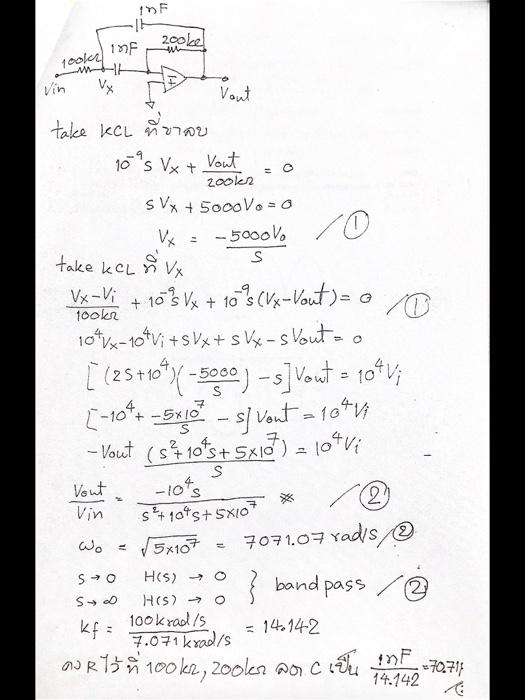 1nF
200kΩ
1nF
100kΩ
Vin Vx Vout
take KCL ที่ขาลบ
10⁻⁹s Vx + Vout/200kΩ = 0
sVx + 5000Vo = 0
Vx = -5000Vo/s /①
take KCL ที่ Vx
Vx-Vi/100kΩ + 10⁻⁹s Vx + 10⁻⁹s (Vx-Vout) = 0 /①
10⁴Vx-10⁴Vi + sVx + sVx - sVout = 0
[(2s+10⁴)(-5000/s) - s] Vout = 10⁴Vi
[-10⁴ + -5×10⁷/s - s] Vout = 10⁴Vi
-Vout (s²+10⁴s+5×10⁷)/s = 10⁴Vi
Vout/Vin = -10⁴s/s²+10⁴s+5×10⁷ ※ /②
ω₀ = √5×10⁷ = 7071.07 rad/s /②
s→0 H(s) → 0 } bandpass /②
s→∞ H(s) → 0
kf = 100krad/s/7.071krad/s = 14.142
คง R ไว้ที่ 100kΩ, 200kΩ ลด C เป็น 1nF/14.142 =70.71